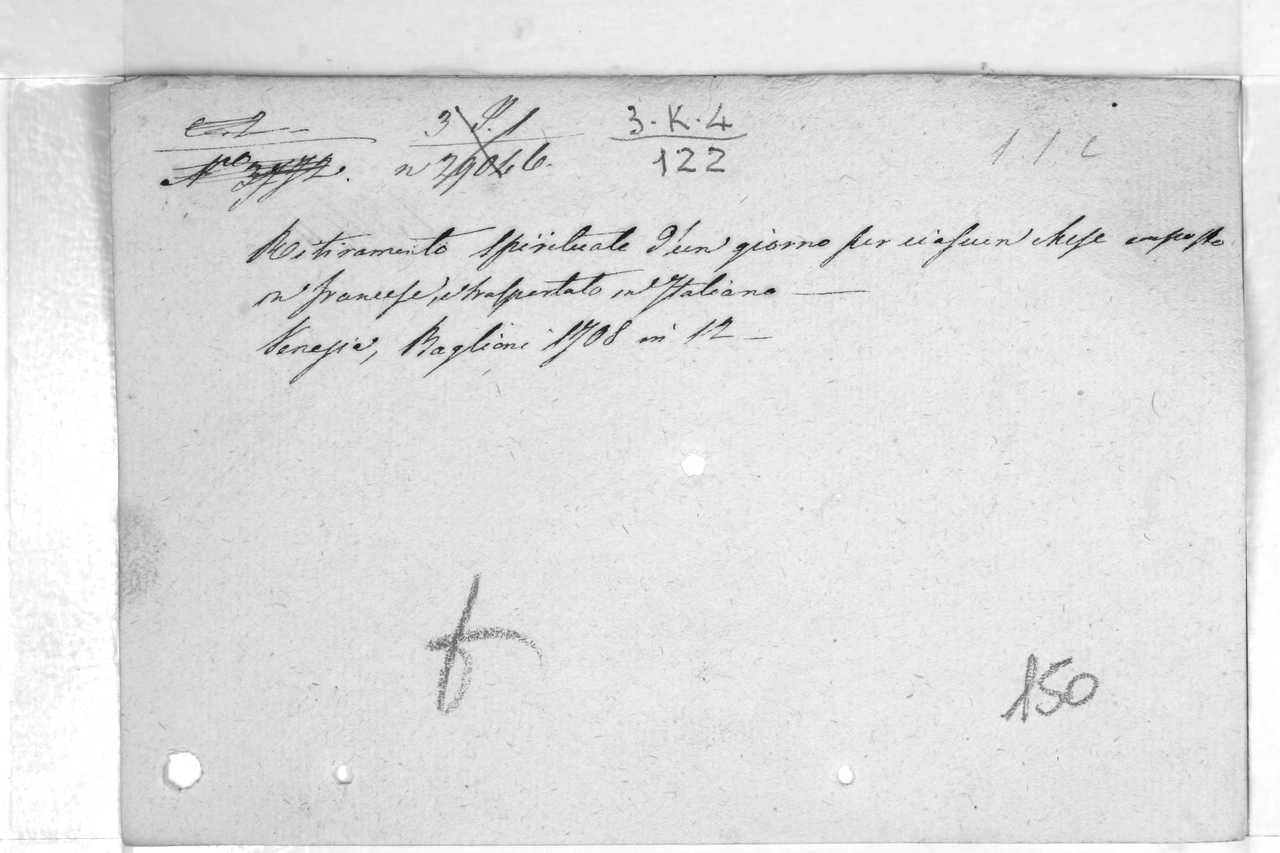 3 P. 1 3·K·4
n 29046 b. 122
Ritiramento spirituale d'un giorno per ciascun mese composto
in francese, e trasportato in Italiano —
Venezia, Baglioni 1708 in 12 —
150